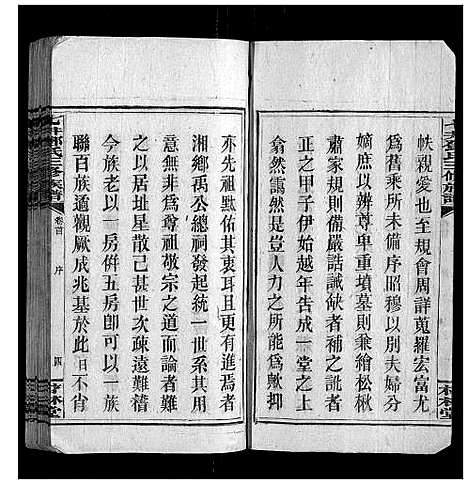 帙親愛也至規會周詳蒐羅宏富尤
為舊乘所未備序昭穆以別夫婦分
嫡庶以辨尊卑重墳墓則兼繪松楸
肅家規則備嚴誥誡缺者補之訛者
正之甲子伊始越年告成一堂之上
翕然靄然是豈人力之所能為歟抑
亦先祖默佑其衷耳且更有進焉者
湘鄉禹公總祠發起統一世系其用
意無非為尊祖敬宗之道而論者難
之以居址星散己甚世次疎遠難稽
今族老以一房併五房卽可以一族
聯百族通觀厥成兆基於此日不肖
三修族譜
卷首
序
四
林堂